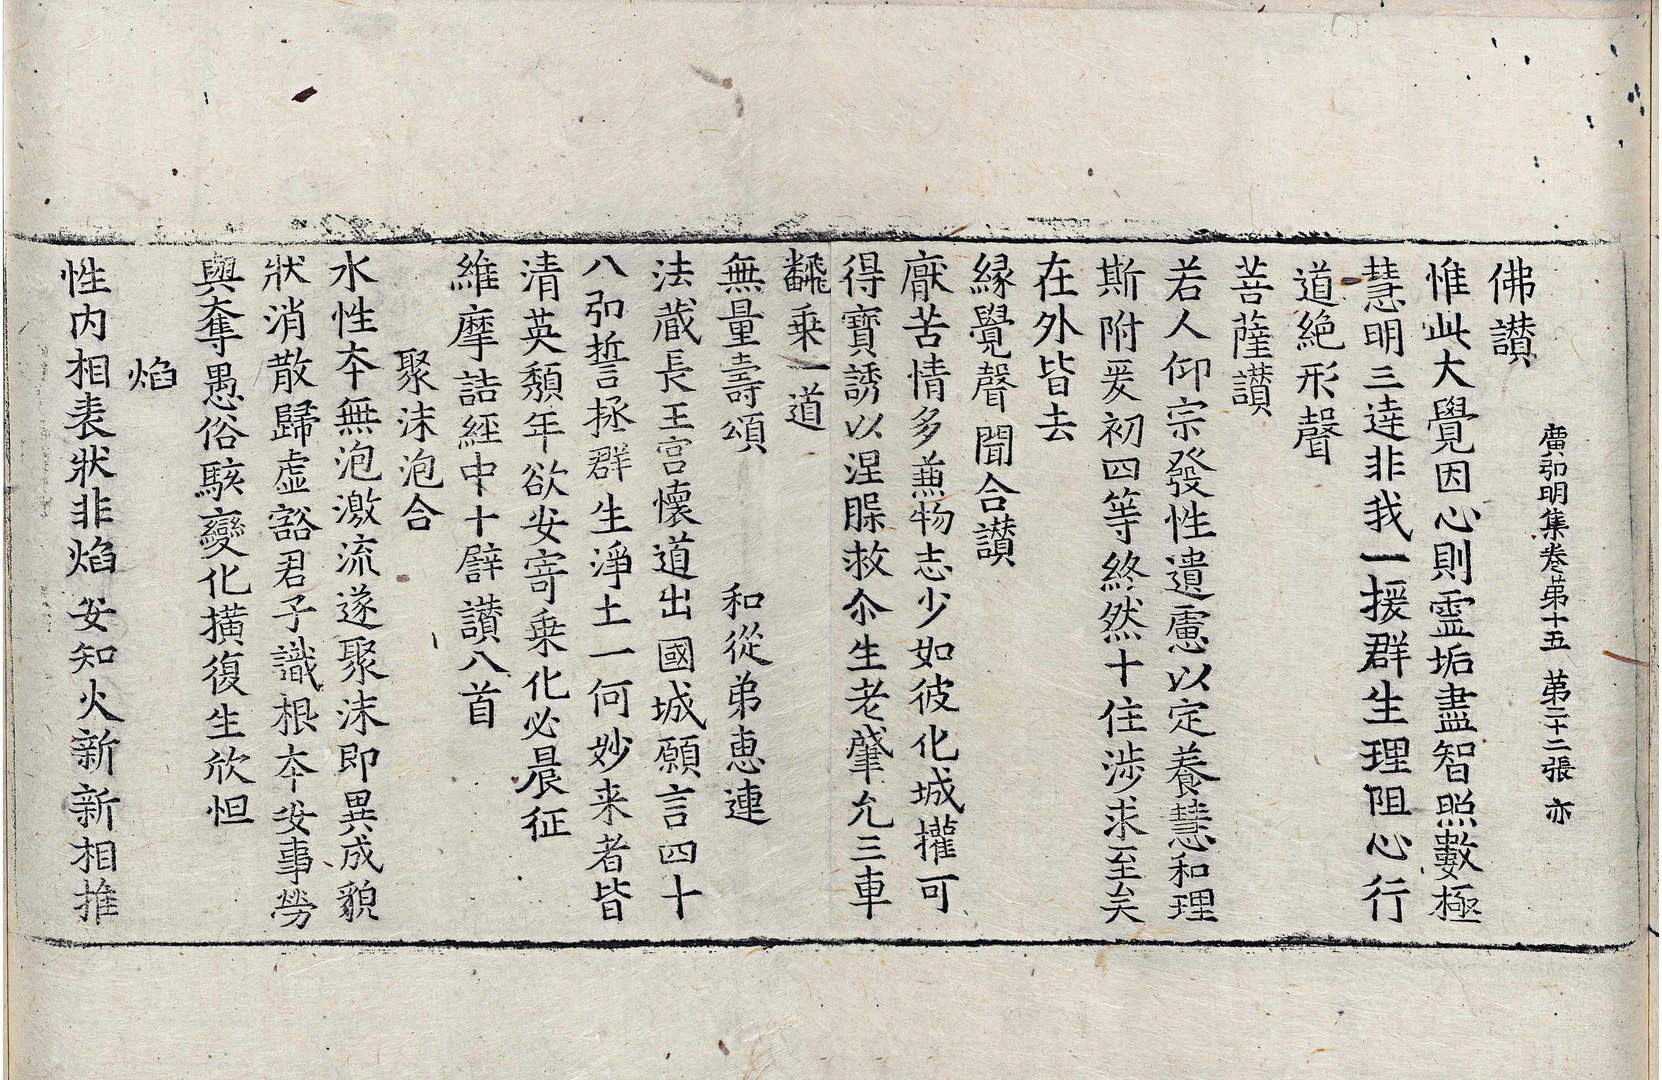 廣弘明集卷苐十五　苐二十二張　亦
佛讃
惟此大覺因心則靈垢盡智照數極
慧明三達非我一援群生理阻心行
道絶形聲
菩薩讃
若人仰宗發性遺慮以定養慧和理
斯附爰初四等終然十住涉求至矣
在外皆去
縁覺聲聞合讃
厭苦情多兼物志少如彼化城權可
得寶誘以涅槃救尒生老肇允三車
翻乗一道
無量壽頌　和從弟惠連
法蔵長王宮懷道出國城願言四十
八弘誓拯群生淨土一何妙来者皆
清英頽年欲安寄乗化必晨征
維摩詰經中十譬讃八首
聚沫泡合
水性夲無泡激流遂聚沫即異成貌
狀消散歸虛豁君子識根夲安事勞
與奪愚俗駭變化横復生欣怛
焰
性内相表狀非焰安知火新新相推